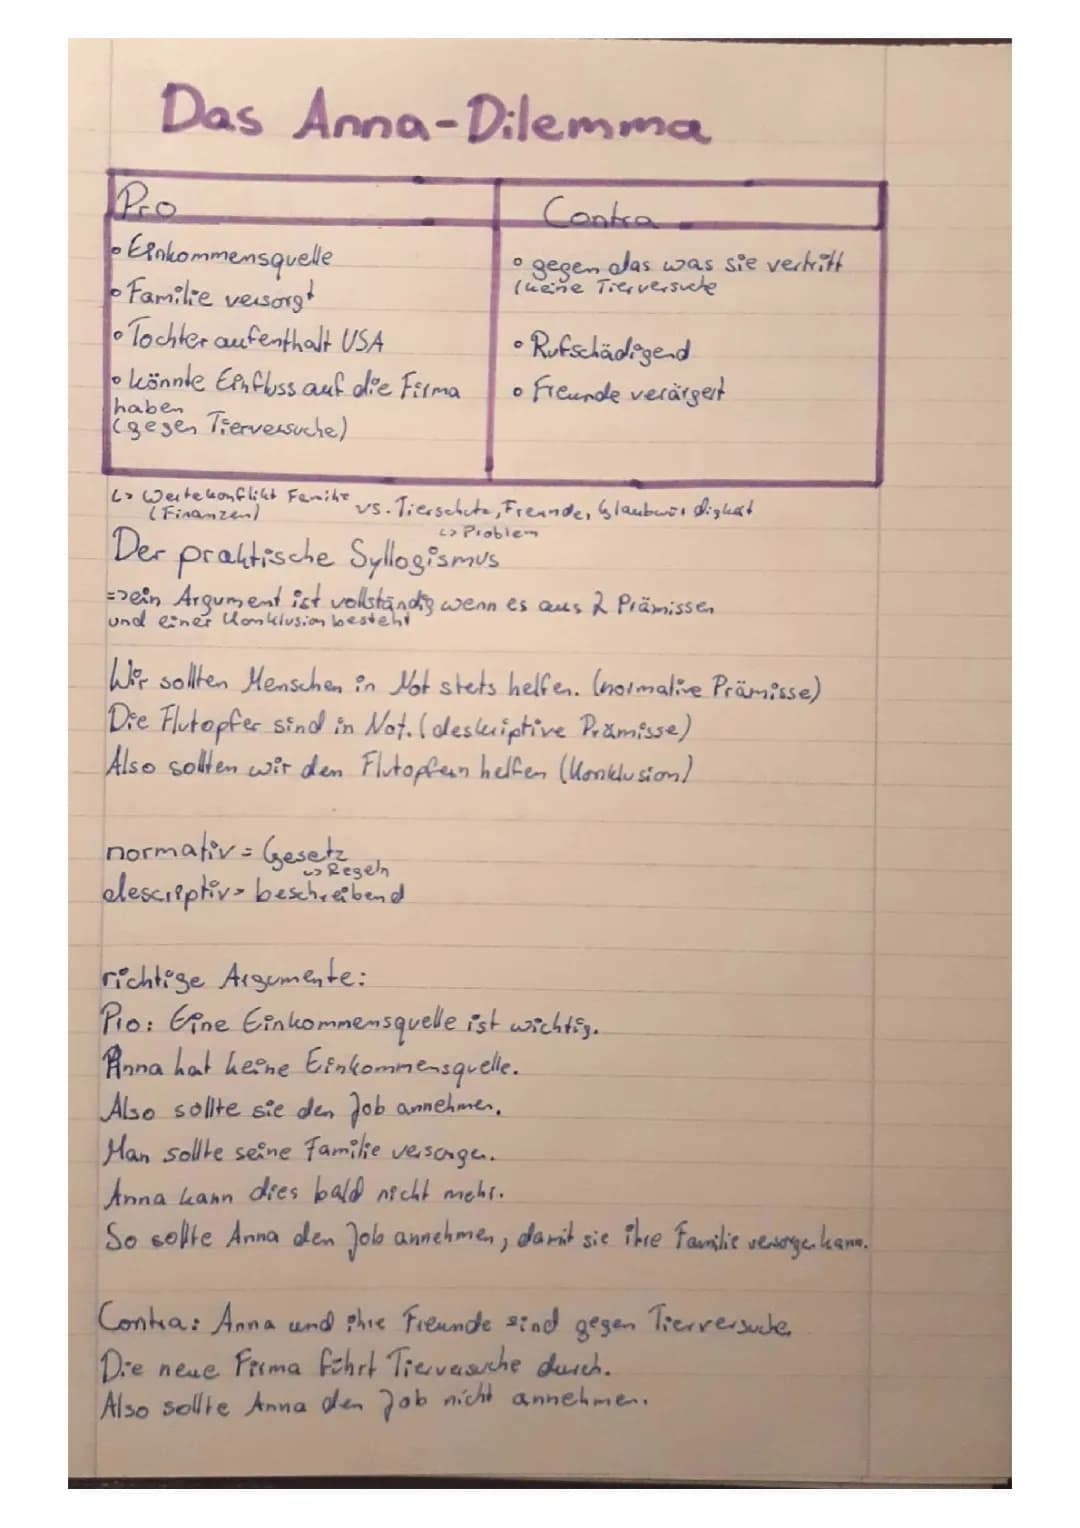 Das Anna-Dilemma
Pro
Contra
• Einkommensquelle
• Familie versorgt
• Tochter aufenthalt USA
• könnte Einfluss auf die Firma
haben
(gegen Tierversuche)
• gegen das was sie vertritt
(keine Tierversuche
• Rufschädigend
• Freunde verärgert
↳ Wertekonflikt Familie vs. Tierschutz, Freunde, Glaubwürdigkeit
(Finanzen)
↳ Problem
Der praktische Syllogismus
=> ein Argument ist vollständig wenn es aus 2 Prämissen
und einer Konklusion besteht
Wir sollten Menschen in Not stets helfen. (normative Prämisse)
Die Flutopfer sind in Not. (deskriptive Prämisse)
Also sollten wir den Flutopfern helfen (Konklusion)
normativ = Gesetz
↳ Regeln
descriptiv = beschreibend
richtige Argumente:
Pro: Eine Einkommensquelle ist wichtig.
Anna hat keine Einkommensquelle.
Also sollte sie den Job annehmen.
Man sollte seine Familie versorgen.
Anna kann dies bald nicht mehr.
So sollte Anna den Job annehmen, damit sie ihre Familie versorgen kann.
Contra: Anna und ihre Freunde sind gegen Tierversuche
Die neue Firma führt Tierversuche durch.
Also sollte Anna den Job nicht annehmen.